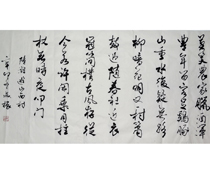 莫笑農家臘酒渾
豐年留客足鷄豚
山重水複疑無路
柳暗花明又一村簫
鼓追隨春社近衣
冠簡樸古風存從
今若許閑乘月拄
杖無時夜叩門
陸游遊山西村
辛卯